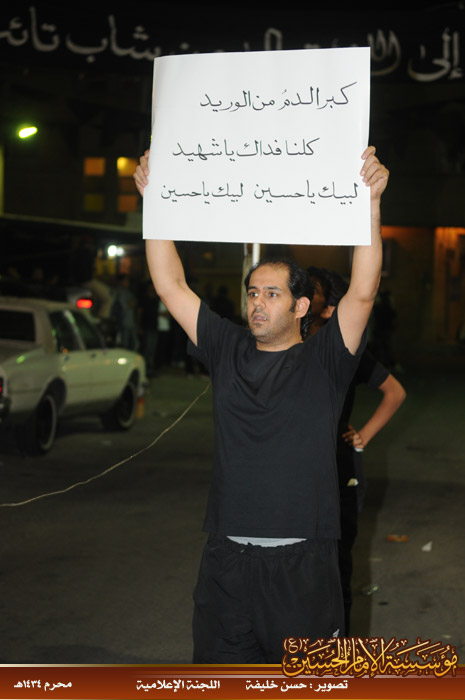 إلى الا
شاب تائب
كبر الدمُ من الوريد
كلنا فداك يا شهيد
لبيك يا حسين لبيك يا حسين
مؤسسة الإمام الحسين (ع)
تصوير : حسن خليفة اللجنة الإعلامية محرم ١٤٣٤هـ